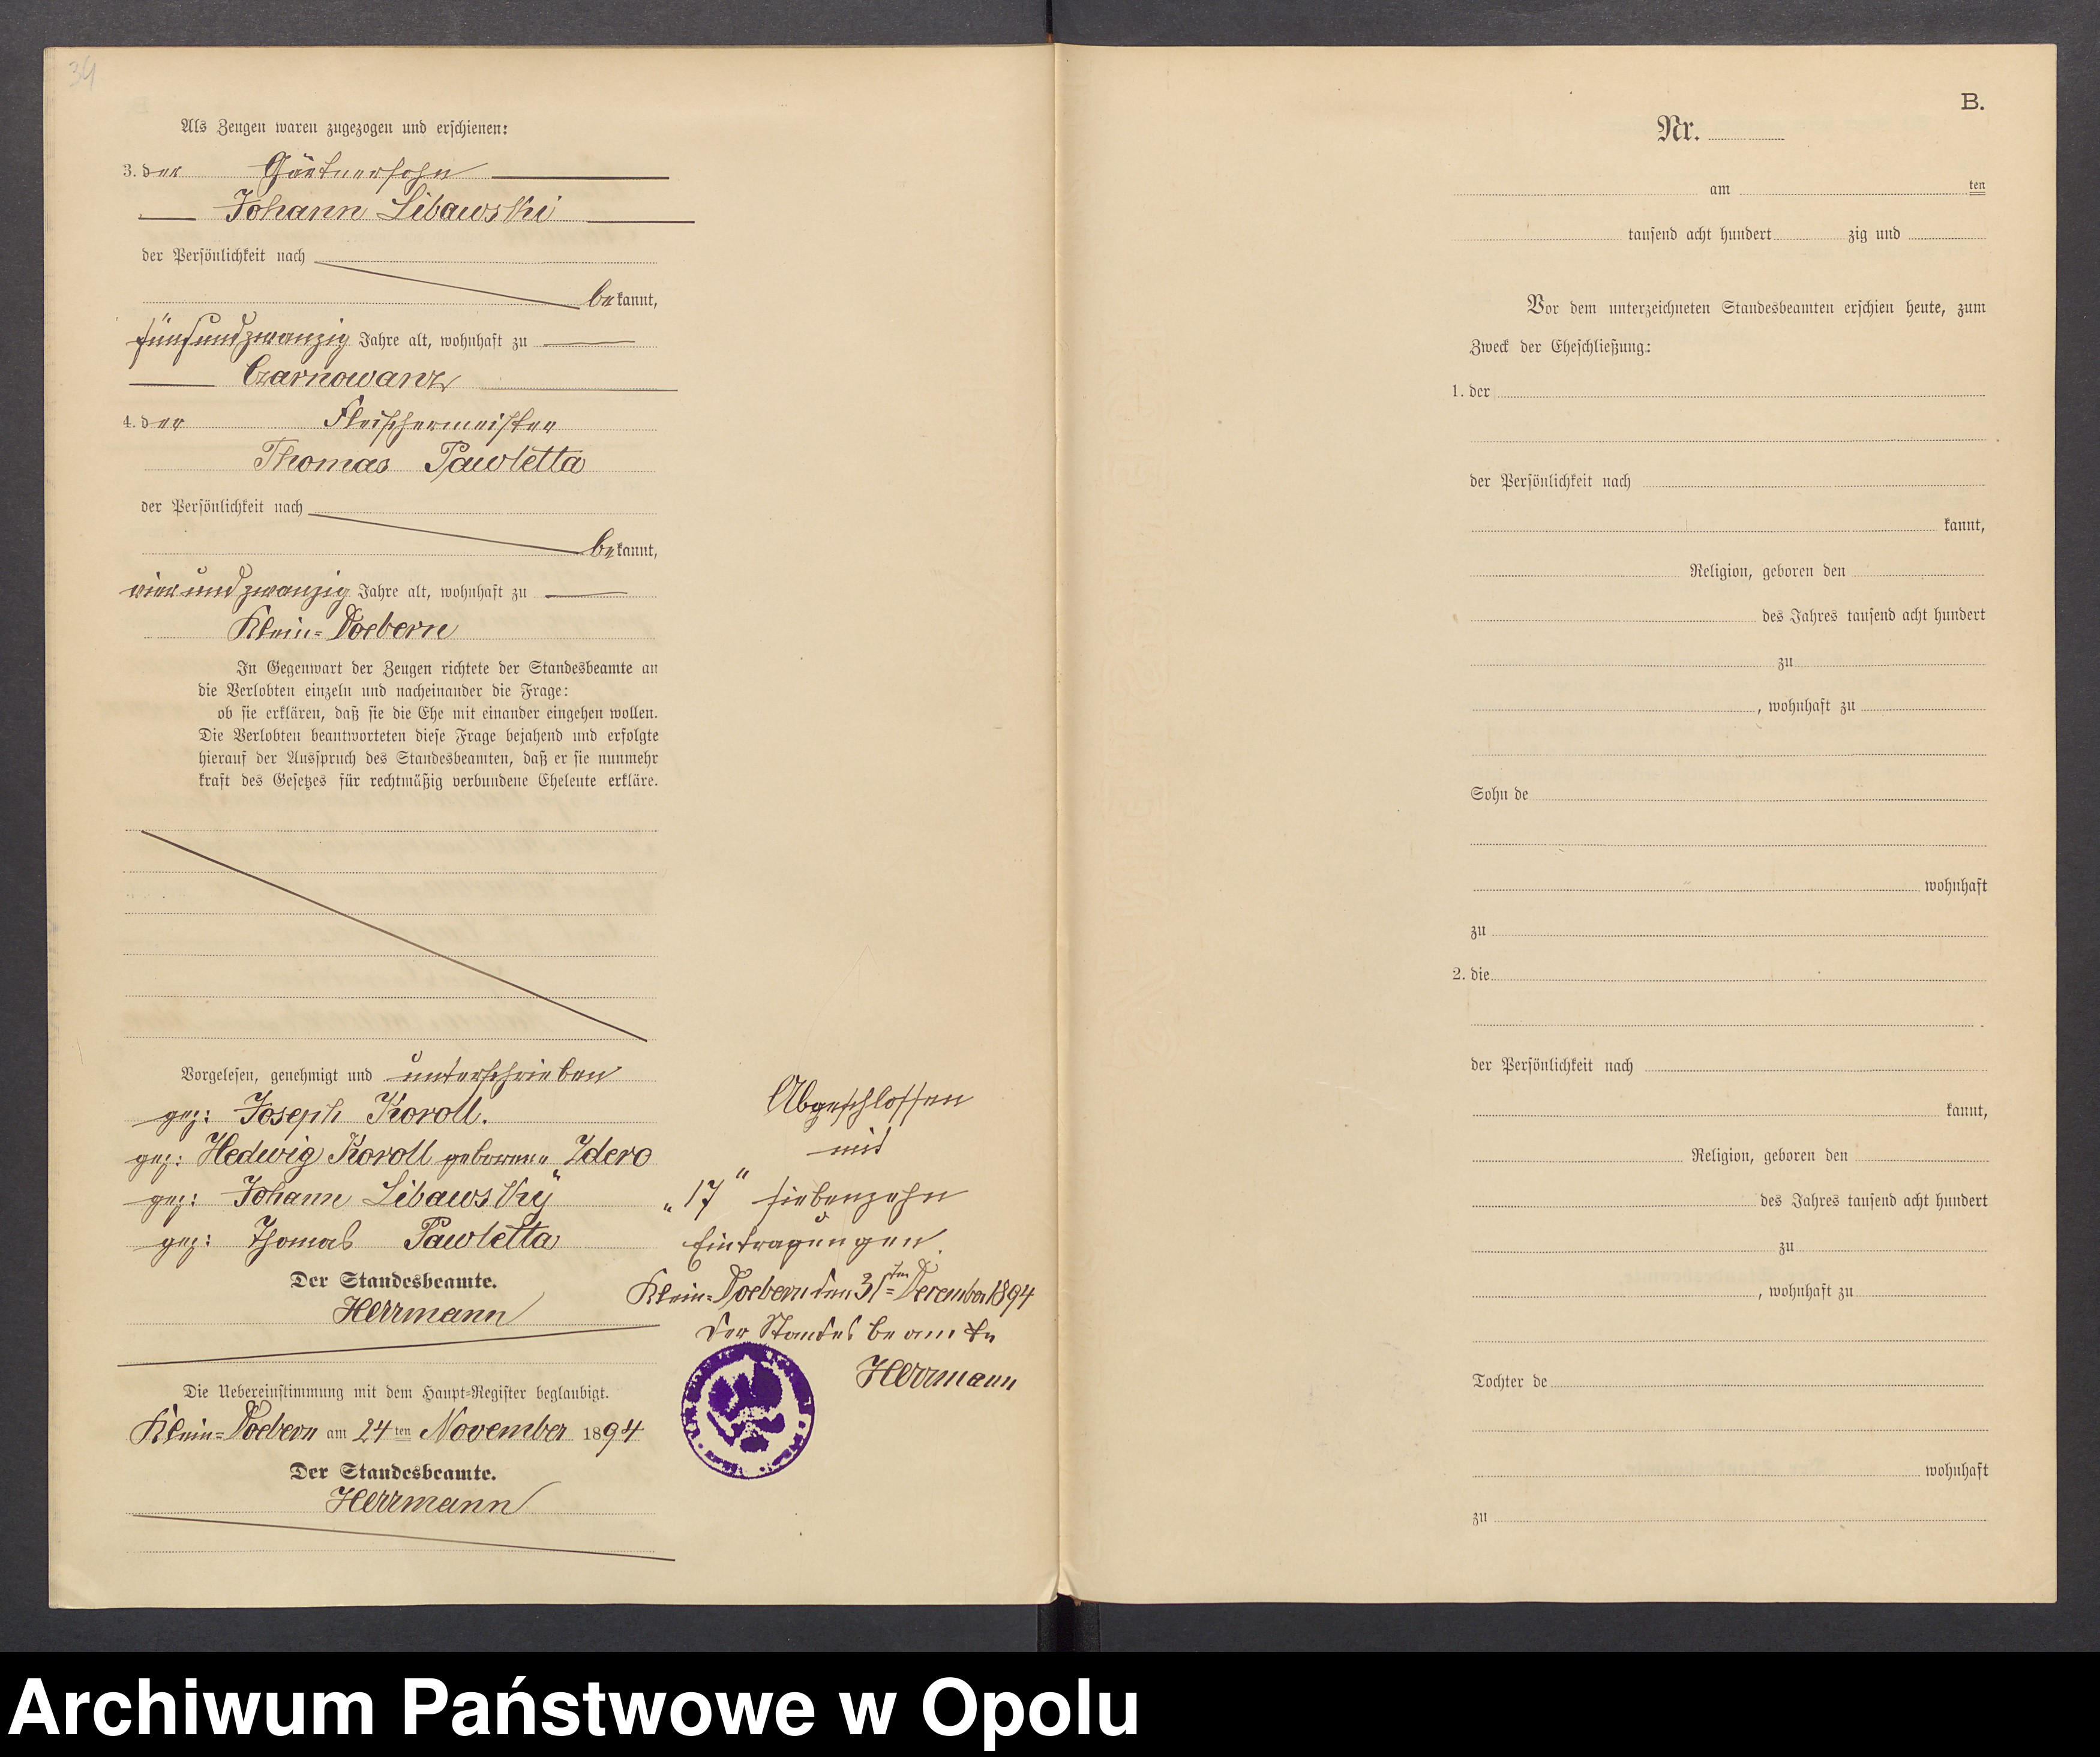 34
Als Zeugen waren zugezogen und erschienen:
3. der Gärtnersohn
Johann Libawski
der Persönlichkeit nach
bekannt,
fünfundzwanzig Jahre alt, wohnhaft zu
Czarnowanz
4. der Fleischermeister
Thomas Pawletta
der Persönlichkeit nach
bekannt,
vierundzwanzig Jahre alt, wohnhaft zu
Klein-Doebern
In Gegenwart der Zeugen richtete der Standesbeamte an
die Verlobten einzeln und nacheinander die Frage:
ob sie erklären, daß sie die Ehe mit einander eingehen wollen.
Die Verlobten beantworteten diese Frage bejahend und erfolgte
hierauf der Ausspruch des Standesbeamten, daß er sie nunmehr
kraft des Gesetzes für rechtmäßig verbundene Eheleute erkläre.
Vorgelesen, genehmigt und unterschrieben
gez: Joseph Koroll.
gez: Hedwig Koroll geborene Zdero
gez: Johann Libawsky
gez: Thomas Pawletta
Der Standesbeamte.
Herrmann
Die Uebereinstimmung mit dem Haupt-Register beglaubigt.
Klein-Doebern am 24ten November 1894
Der Standesbeamte.
Herrmann
Abgeschlossen
mit
„17“ siebenzehn
Eintragungen.
Klein-Doebern den 31ten December 1894
Der Standesbeamte
Herrmann
B.
Nr.
am ten
tausend acht hundert zig und
Vor dem unterzeichneten Standesbeamten erschien heute, zum
Zweck der Eheschließung:
1. der
der Persönlichkeit nach
kannt,
Religion, geboren den
des Jahres tausend acht hundert
zu
, wohnhaft zu
Sohn de
wohnhaft
zu
2. die
der Persönlichkeit nach
kannt,
Religion, geboren den
des Jahres tausend acht hundert
zu
, wohnhaft zu
Tochter de
wohnhaft
zu
Archiwum Państwowe w Opolu